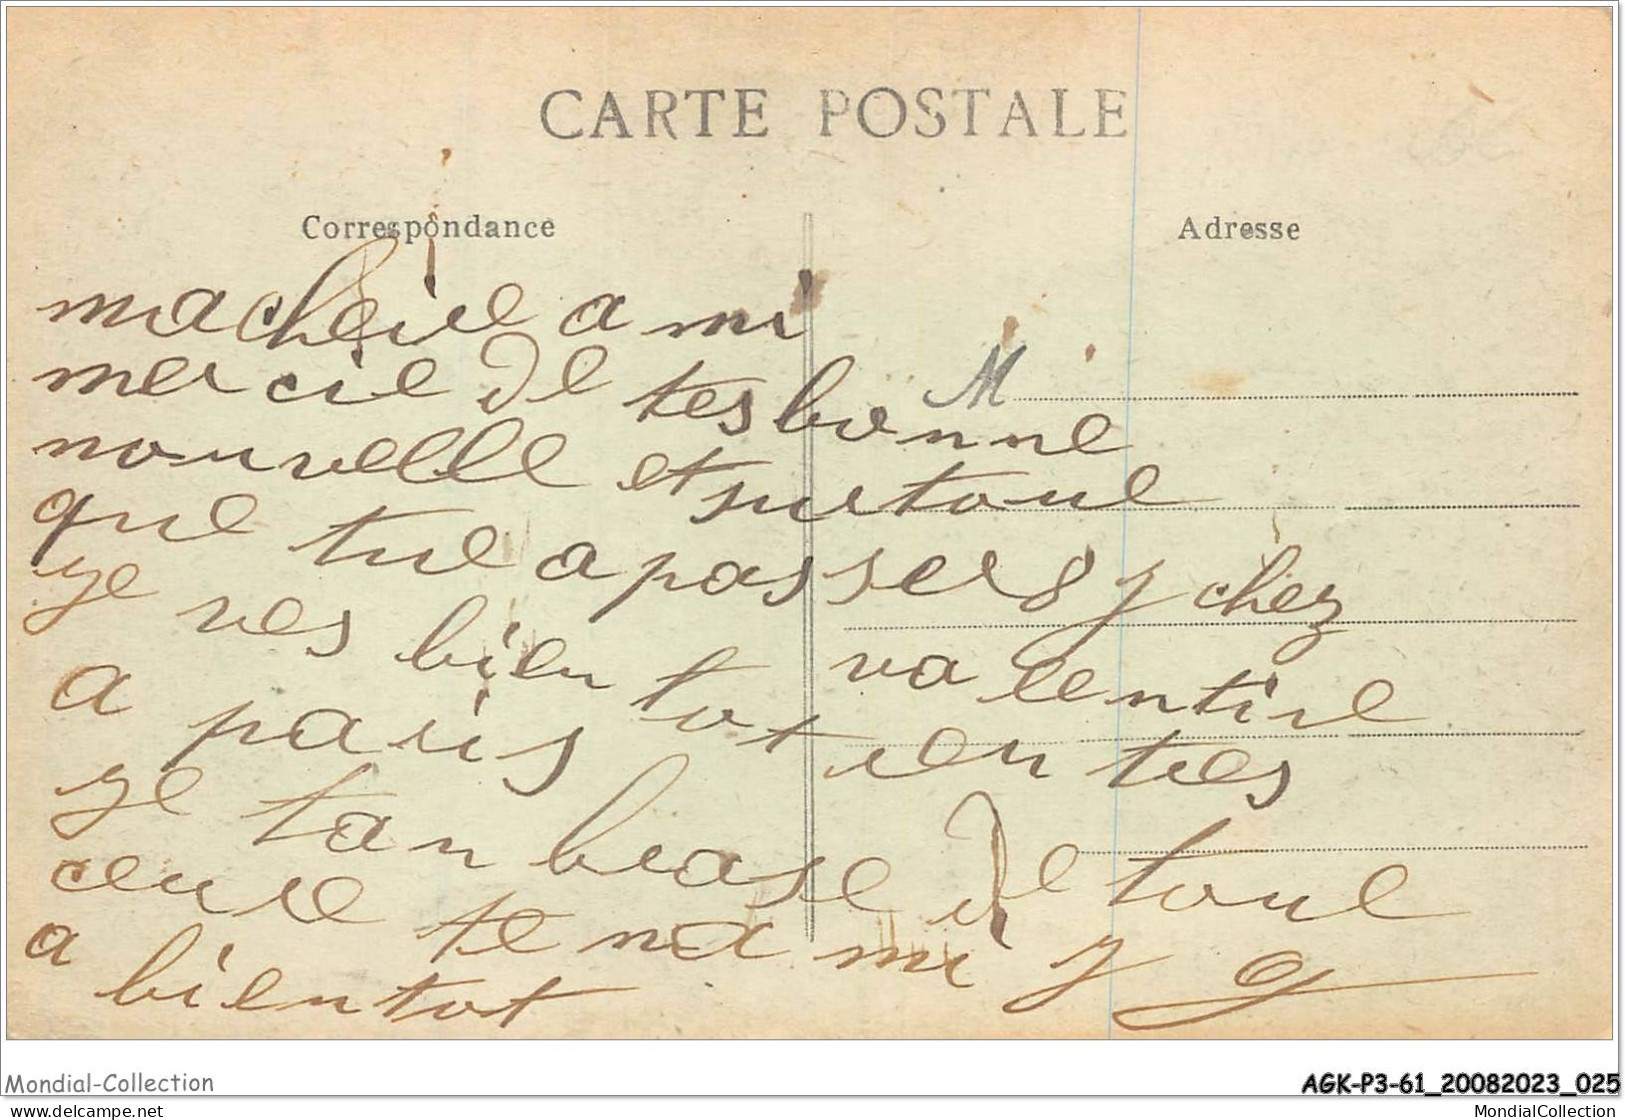 CARTE POSTALE
Correspondance
Adresse
M
macheire ami
mercie de tes bonne
nouvelle et surtoue
que tue a passer 8 j chez
je ves bien tot valentine
a paris rien tres
je tan brase de toue
ceure tenami J g
a bientot
Mondial-Collection
AGK-P3-61_20082023_025
www.delcampe.net
MondialCollection